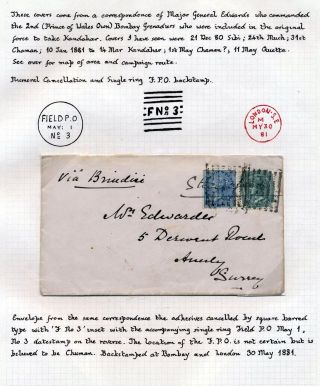 These covers come from a correspondence of Major General Edwards who commanded
the 2nd (Prince of Wales Own) Bombay Grenadiers who were included in the original
force to take Kandahar. Covers I have seen were 21 Dec 80 Sibi; 24th Much; 31st
Chaman; 10 Jan 1881 to Mar Kandahar; 1st May Chaman?, 11 May Quetta.
See over for map of area and campaign route.
Numeral Cancellation and Single ring F.P.O. backstamp.
FIELD P.O
MAY: 1
No 3
F No 3
LONDON·S.E
M
MY 30
81
Via Brindisi
Mrs Edwardes
5 Derwent Road
Anerly
Surrey
Envelope from the same correspondence the adhesives cancelled by square barred
type with 'F No 3' inset with the accompanying single ring Field P.O May 1,
No 3 datestamp on the reverse. The location of the F.P.O. is not certain but is
believed to be Chaman. Backstamped at Bombay and London 30 May 1881.